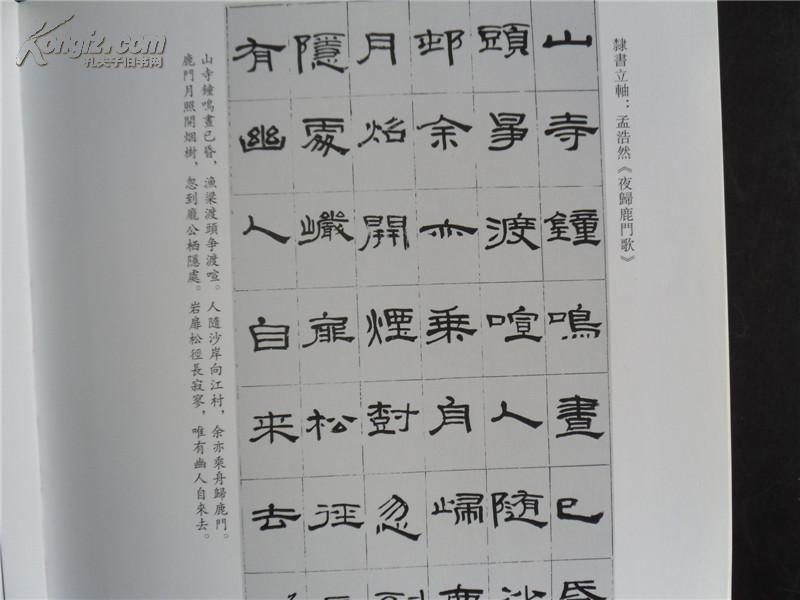 隸書立軸：孟浩然《夜歸鹿門歌》
山寺鐘鳴晝已昏
頭爭渡喧人随沙
邨余亦乘舟歸鹿
月炤開煙尌忽到
隱處巖扉松徑長
有幽人自來去
山寺鐘鳴晝已昏，漁梁渡頭爭渡喧。人隨沙岸向江村，余亦乘舟歸鹿門。
鹿門月照開烟樹，忽到龐公栖隱處。岩扉松徑長寂寥，唯有幽人自來去。
Kongfz.com
孔夫子旧书网